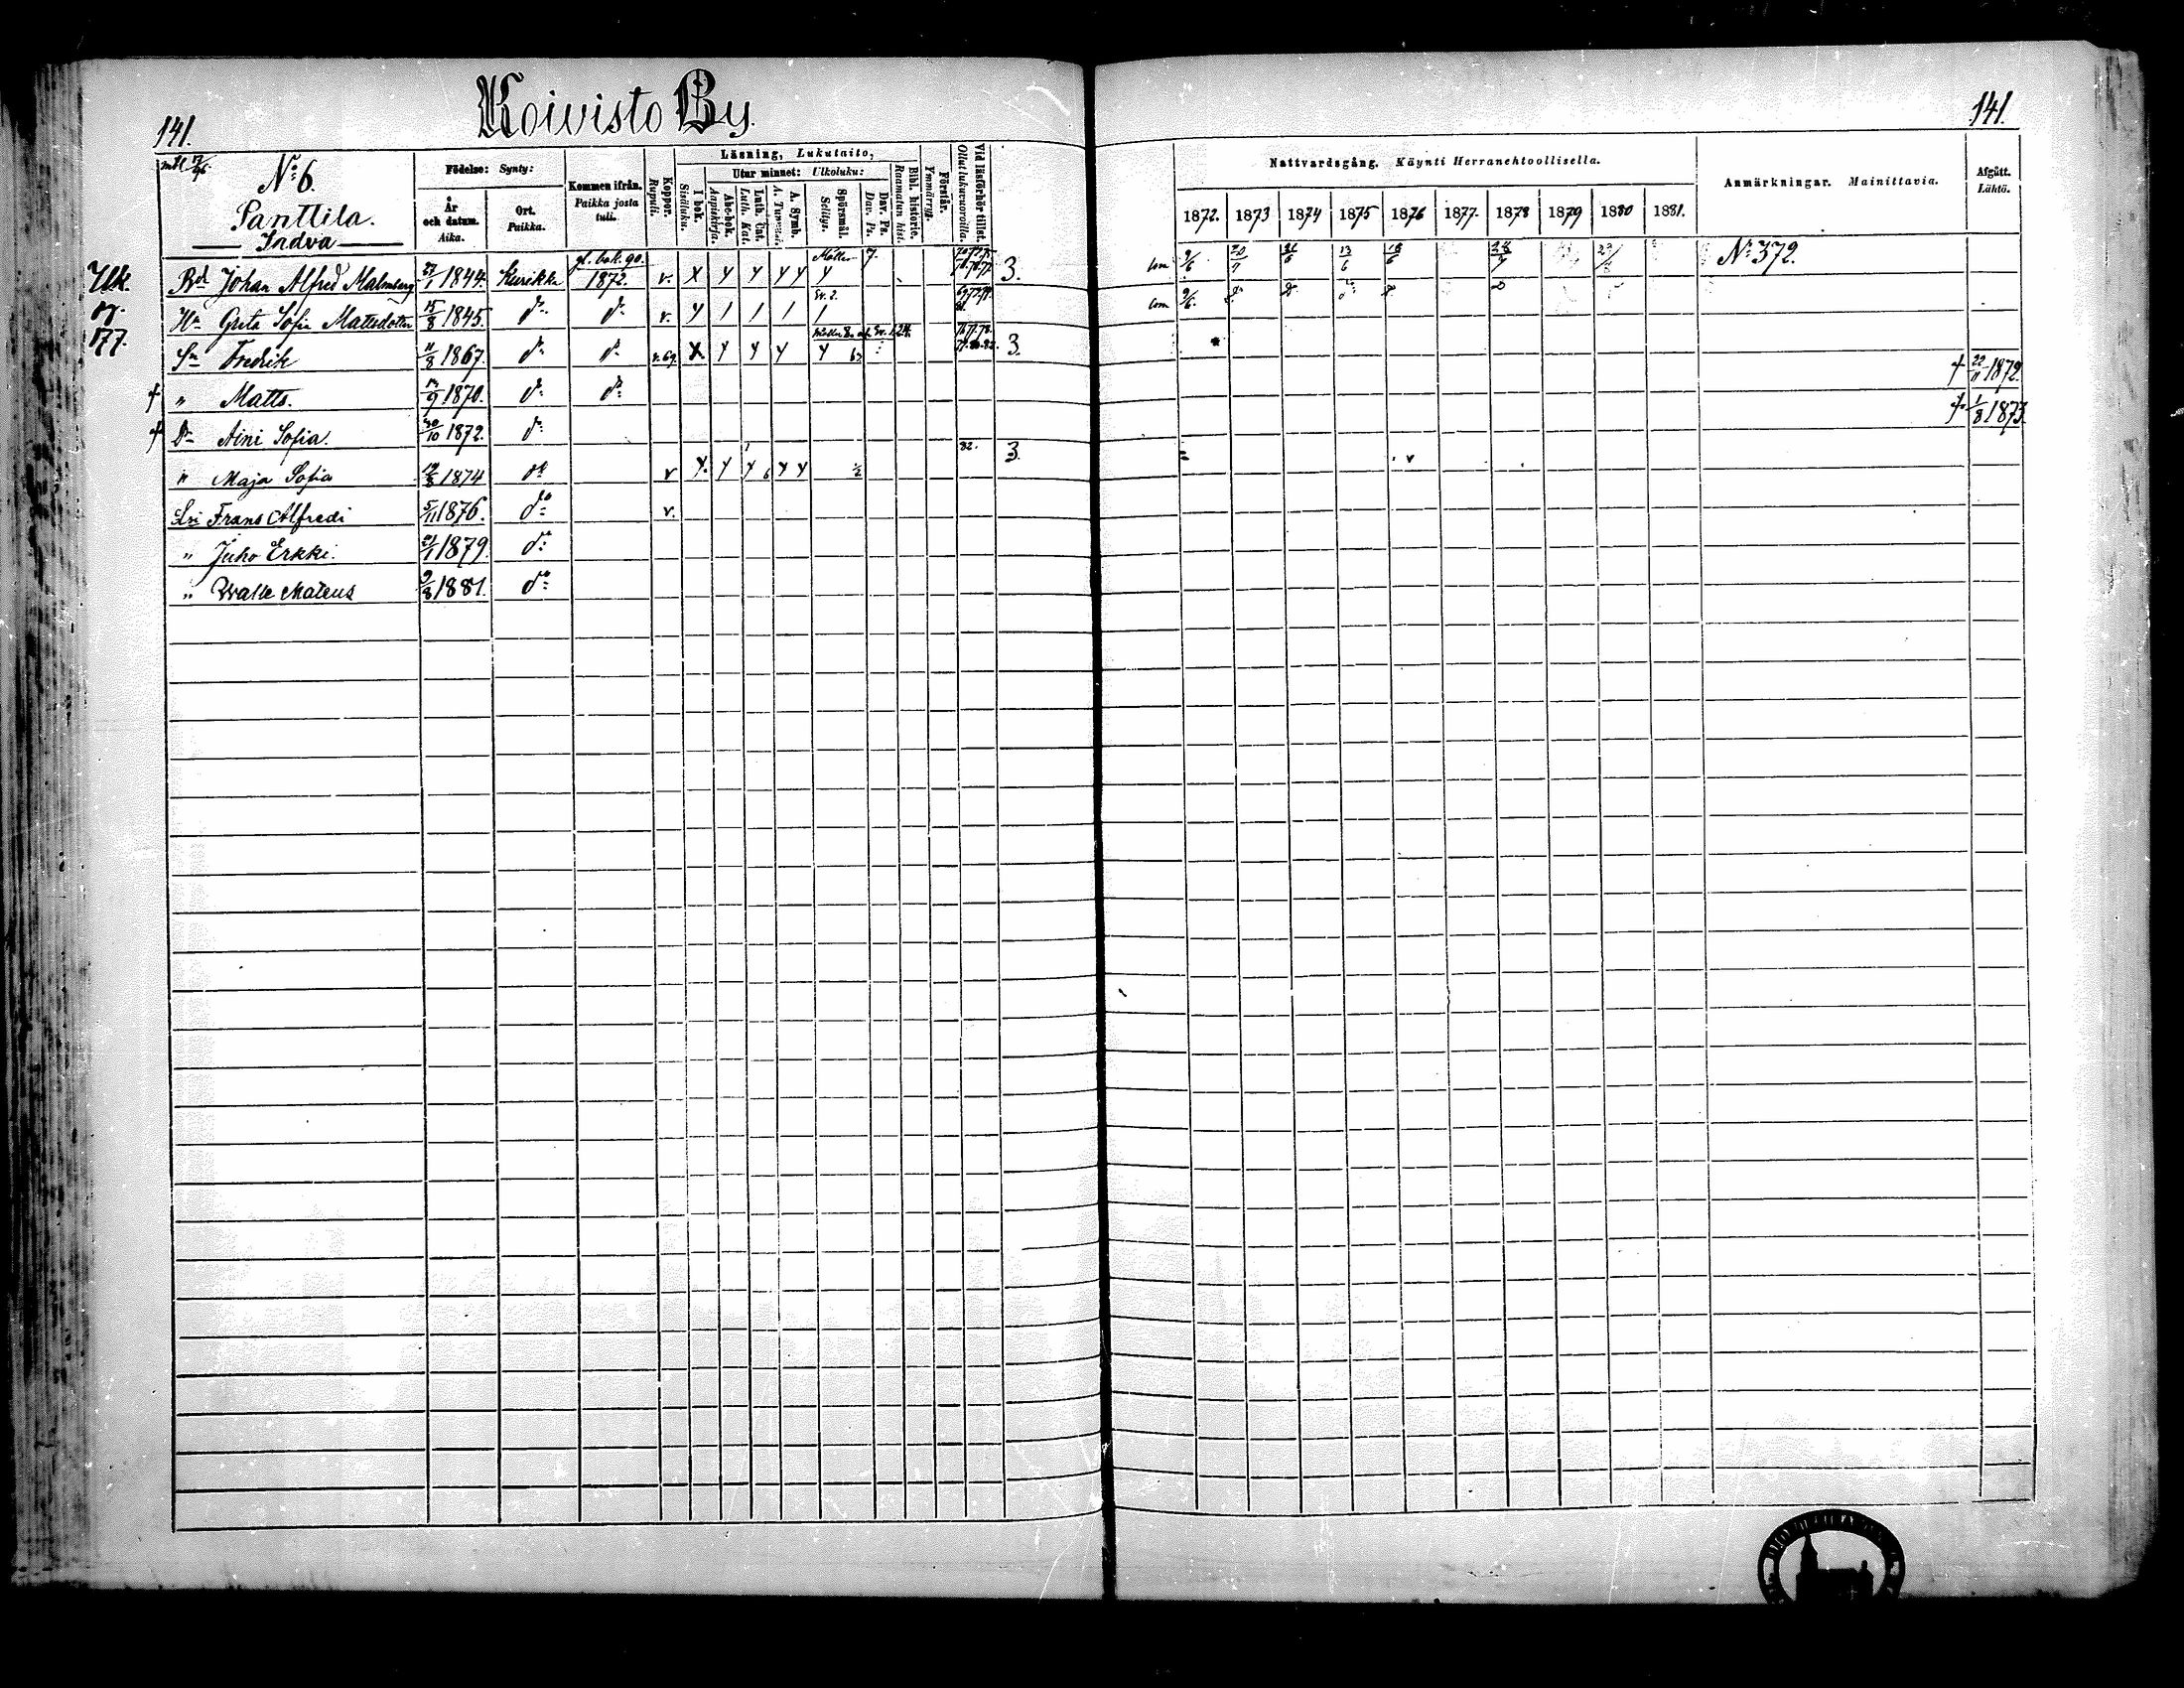 141.
Koivisto By.
141.
No 6.
Panttila.
Indva
Födelse: Synty:
År och datum. Aika.
Ort. Paikka.
Kommen ifrån. Paikka josta tuli.
Koppor. Rupuli.
Läsning, Lukutaito,
I bok. Sisäluku.
Utur minnet: Ulkoluku:
Abc-bok. Aapiskirja.
Luth. Cat. Luth. Kat.
A. Symb.
Spörsmål. Selitys.
Dav. Ps. Dav. Ps.
Bibl. historie. Raamatun hist.
Förstår. Ymmärrys.
Vid läsförhör tillst. Ollut lukuvuoroilla.
Nattvardsgång. Käynti Herranehtoollisella.
1872. 1873 1874 1875 1876 1877. 1878 1879 1880 1881.
Anmärkningar. Mainittavia.
Afgått. Lähtö.
Utk. Bd Johan Alfred Malmberg 27/1 1844. Kurikka gl. bok. 90. 1872. v. X Y Y Y Y Y 7. 3. com 9/6 No 372.
Hu Greta Sofia Mattsdotter 15/8 1845. do do v. Y / / / / com 9/6.
177. Sn Fredrik 11/8 1867. do do X Y Y Y Y 3.
† " Matts. 1870. do do † 22/11 1872.
† Dr Aini Sofia. 30/10 1872. do † 1/8 1873.
" Maja Sofia 1874 do v Y Y Y Y Y 82. 3.
Lsi Frans Alfredi 5/11 1876. do v.
" Juho Erkki. 1879. do
" Walle Mateus 9/8 1881. do